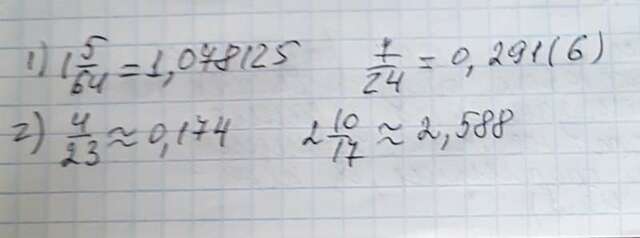 1) 1 5/64 = 1,078125 7/24 = 0,291(6)
2) 4/23 ≈ 0,174 2 10/17 ≈ 2,588